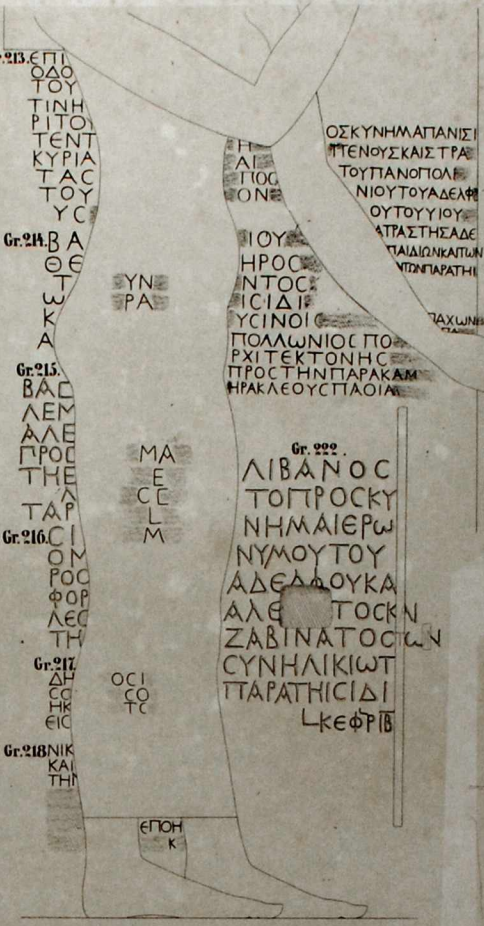 Gr.213. ΕΠΙ
ΟΔΟ
ΤΟΥ
ΤΙΝΗ
ΡΙΤΟ
ΤΕΝΤ
ΚΥΡΙΑ
ΤΑϹ
ΤΟΥ
ΥϹ
Gr.214. ΒΑ
ΘΕ
Τ
ω
Κ
Α
Gr.215.
ΒΑϹ
ΛΕΜ
ΑΛΕ
ΠΡΟϹ
ΤΗΕ
Λ
ΤΑΡ
Gr.216. ϹΙ
ΟΜ
ΡΟϹ
ΦΟΡ
ΛΕϹ
ΤΗ
Gr.217.
ΔΗ
ϹΟ
ΗΚ
ΕΙϹ
Gr.218 ΝΙΚ
ΚΑΙ
ΤΗΝ
ΥΝ
ΡΑ
ΜΑ
Ε
ϹϹ
L
Μ
ΟϹΙ
ϹΟ
ΤϹ
ΕΠΟΗ
Κ
Η
ΑΙ
ΠΟϹ
ΟΝ
ΙΟΥ
ΗΡΟϹ
ΝΤΟϹ
ΙϹΙΔΙ
ΥϹΙΝΟΙϹ
ΠΟΛΛωΝΙΟϹ ΠΟ
ΡΧΙΤΕΚΤΟΝΗϹ
ΠΡΟϹΤΗΝΠΑΡΑΚΑΜ
ΗΡΑΚΛΕΟΥϹΠΑΟΙΑ
ΟΣΚΥΝΗΜΑΠΑΝΙΣΙ
ΠΤΕΝΟΥΣΚΑΙΣΤΡΑ
ΤΟΥΠΑΝΟΠΟΛΕ
ΝΙΟΥΤΟΥΑΔΕΛΦ
ΟΥΤΟΥΥΙΟΥ
ΑΤΡΑΣΤΗΣΑΔΕ
ΠΑΙΔΙΩΝΚΑΙΤΩΝ
ΝΤΩΝΠΑΡΑΤΗΙ
ΠΑΧΩΝ
Gr. 222.
ΛΙΒΑΝΟϹ
ΤΟΠΡΟϹΚΥ
ΝΗΜΑΙΕΡω
ΝΥΜΟΥΤΟΥ
ΑΔΕΛΦΟΥΚΑ
ΑΛΕ ΤΟϹΚΝ
ΖΑΒΙΝΑΤΟϹΤωΝ
ϹΥΝΗΛΙΚΙωΤ
ΠΑΡΑΤΗΙϹΙΔΙ
LΚΕΦΡΙΒ